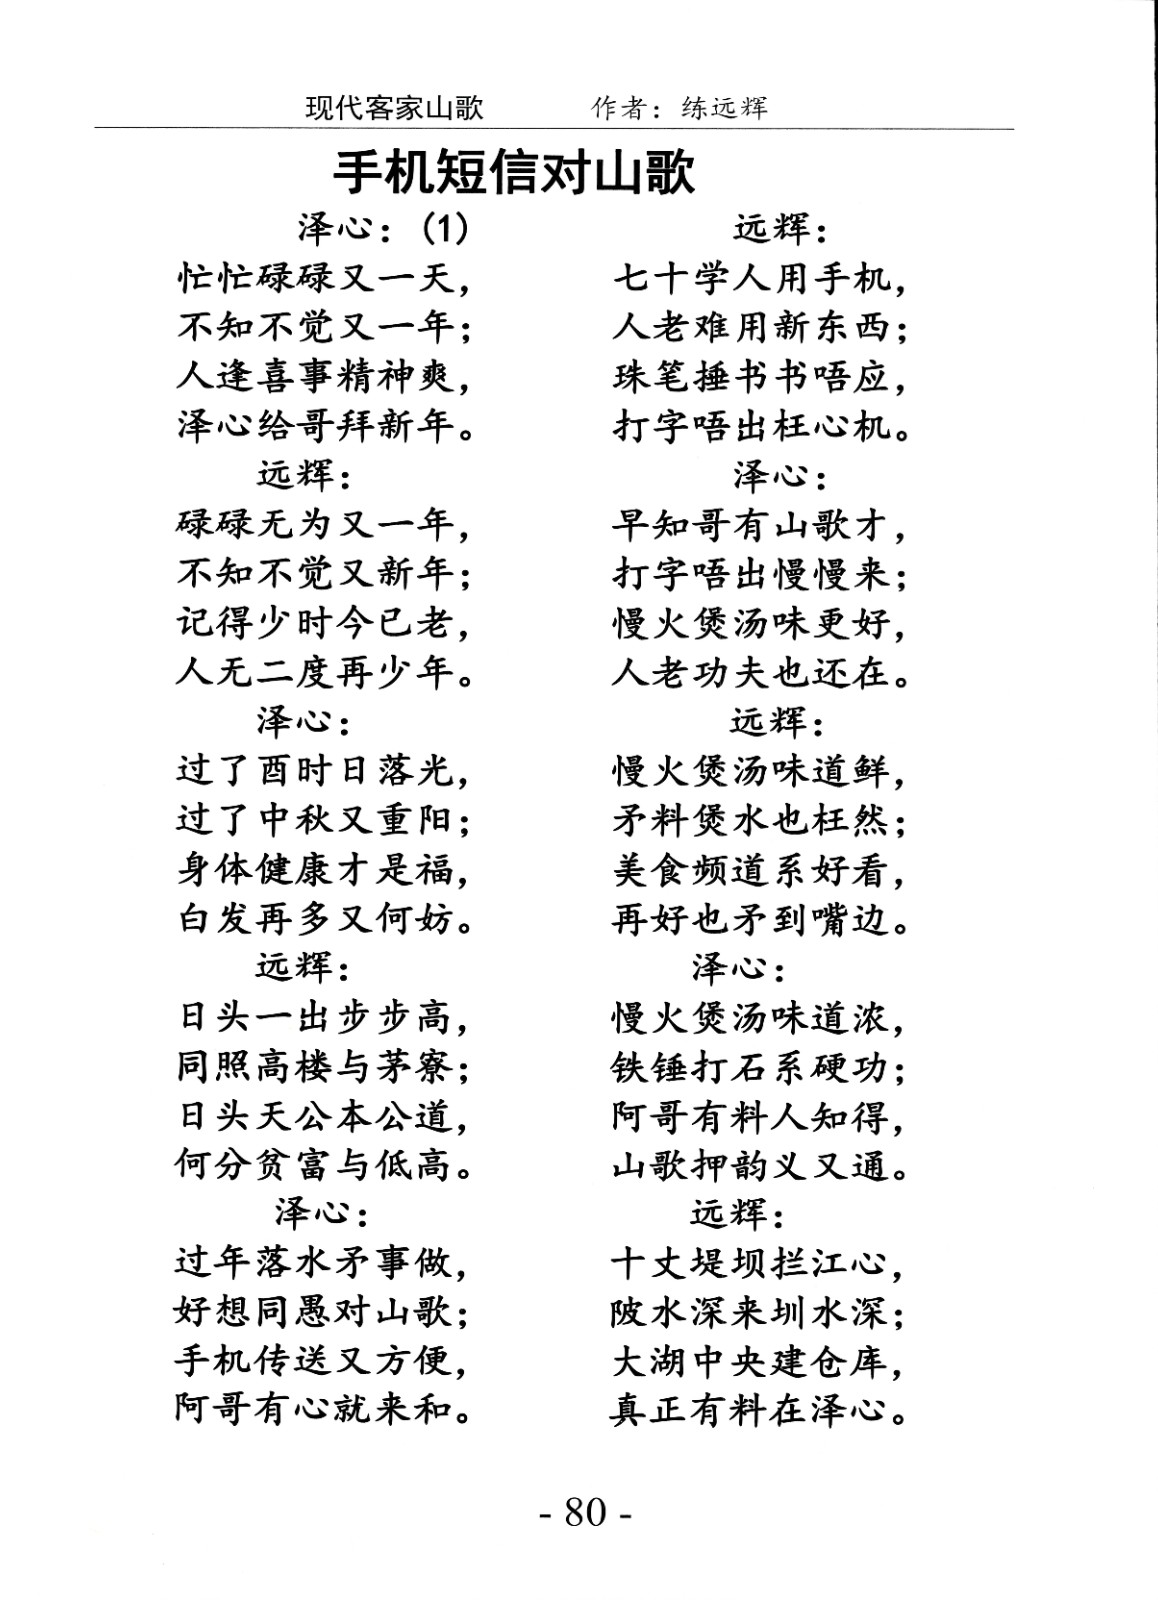 现代客家山歌 作者：练远辉
手机短信对山歌
泽心：(1)
忙忙碌碌又一天，
不知不觉又一年；
人逢喜事精神爽，
泽心给哥拜新年。
远辉：
碌碌无为又一年，
不知不觉又新年；
记得少时今已老，
人无二度再少年。
泽心：
过了酉时日落光，
过了中秋又重阳；
身体健康才是福，
白发再多又何妨。
远辉：
日头一出步步高，
同照高楼与茅寮；
日头天公本公道，
何分贫富与低高。
泽心：
过年落水矛事做，
好想同愚对山歌；
手机传送又方便，
阿哥有心就来和。
远辉：
七十学人用手机，
人老难用新东西；
珠笔捶书书唔应，
打字唔出枉心机。
泽心：
早知哥有山歌才，
打字唔出慢慢来；
慢火煲汤味更好，
人老功夫也还在。
远辉：
慢火煲汤味道鲜，
矛料煲水也枉然；
美食频道系好看，
再好也矛到嘴边。
泽心：
慢火煲汤味道浓，
铁锤打石系硬功；
阿哥有料人知得，
山歌押韵义又通。
远辉：
十丈堤坝拦江心，
陂水深来圳水深；
大湖中央建仓库，
真正有料在泽心。
- 80 -